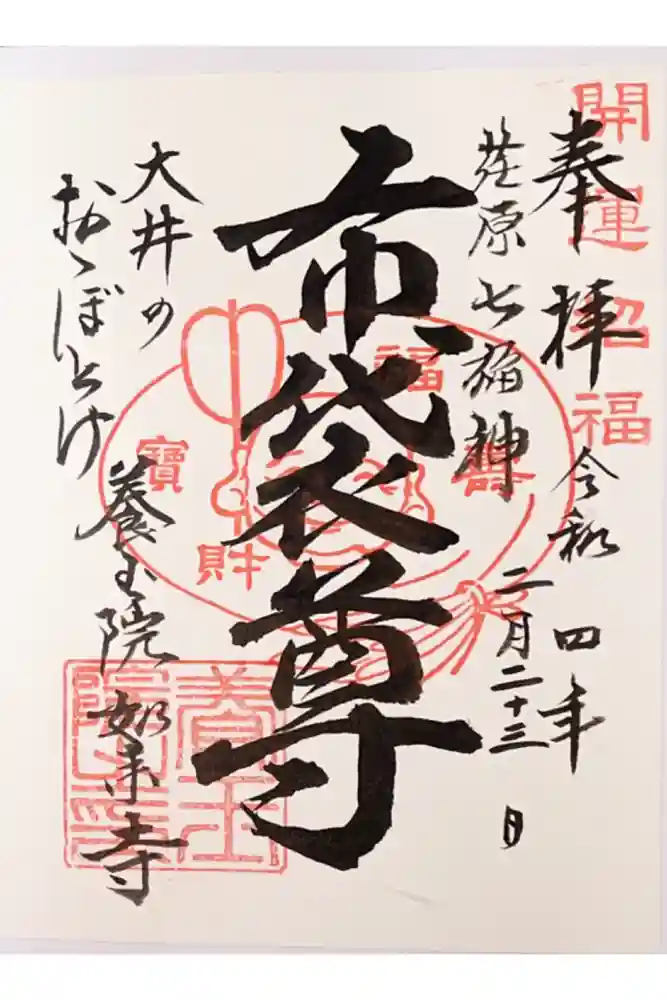 開運招福
奉拝
令和四年
二月二十三日
荏原七福神
布袋尊
福
壽
寶
財
大井の
おゝぼとけ
養玉院如来寺
養玉
院印